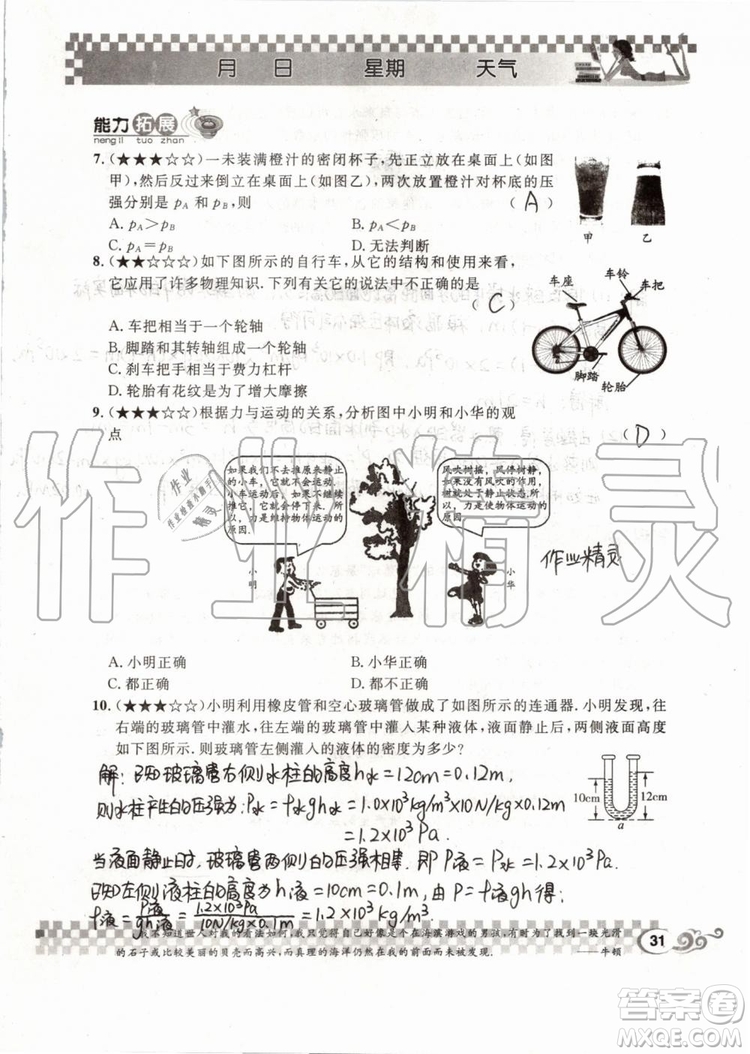 月 日 星期 天气
能力拓展
neng li tuo zhan
7. (★★★☆☆)一未装满橙汁的密闭杯子,先正立放在桌面上(如图
甲),然后反过来倒立在桌面上(如图乙),两次放置橙汁对杯底的压
强分别是 pA 和 pB,则 ( A )
A. pA>pB B. pA<pB
C. pA=pB D. 无法判断
甲 乙
8. (★★☆☆☆)如下图所示的自行车,从它的结构和使用来看,
它应用了许多物理知识.下列有关它的说法中不正确的是
( C )
A. 车把相当于一个轮轴
B. 脚踏和其转轴组成一个轮轴
C. 刹车把手相当于费力杠杆
D. 轮胎有花纹是为了增大摩擦
车座 车铃 车把
脚踏 轮胎
9. (★★★☆☆)根据力与运动的关系,分析图中小明和小华的观
点 ( D )
如果我们不去推原来静止
的小车,它就不会运动.
小车运动后,如果不继续
推它,它就会停下来.所
以,力是维持物体运动的
原因.
风吹树摇,风停树静,
如果没有风吹的作用,
树就处于静止状态.所
以,力是使物体运动的
原因.
小明
小华
作业精灵
A. 小明正确 B. 小华正确
C. 都正确 D. 都不正确
10. (★★★☆☆)小明利用橡皮管和空心玻璃管做成了如图所示的连通器.小明发现,往
右端的玻璃管中灌水,往左端的玻璃管中灌入某种液体,液面静止后,两侧液面高度
如下图所示.则玻璃管左侧灌入的液体的密度为多少?
解:已知玻璃管右侧水柱的高度h水=12cm=0.12m,
则水柱产生的压强为:P水=ρ水gh水=1.0×10³kg/m³×10N/kg×0.12m
=1.2×10³Pa.
10cm 12cm
a
当液面静止时,玻璃管两侧的压强相等,即P液=P水=1.2×10³Pa
已知左侧液柱的高度为h液=10cm=0.1m,由P=ρ液gh得:
ρ液=P液/gh液=1.2×10³Pa/10N/kg×0.1m=1.2×10³kg/m³
我不知道世人对我的看法如何,我只觉得自己好像是在海滨游戏的男孩,有时为了找到一块光滑
的石子或比较美丽的贝壳而高兴,而真理的海洋仍然在我的前面而未被发现.
——牛顿
31
作业精灵
答案圈
MXQE.COM